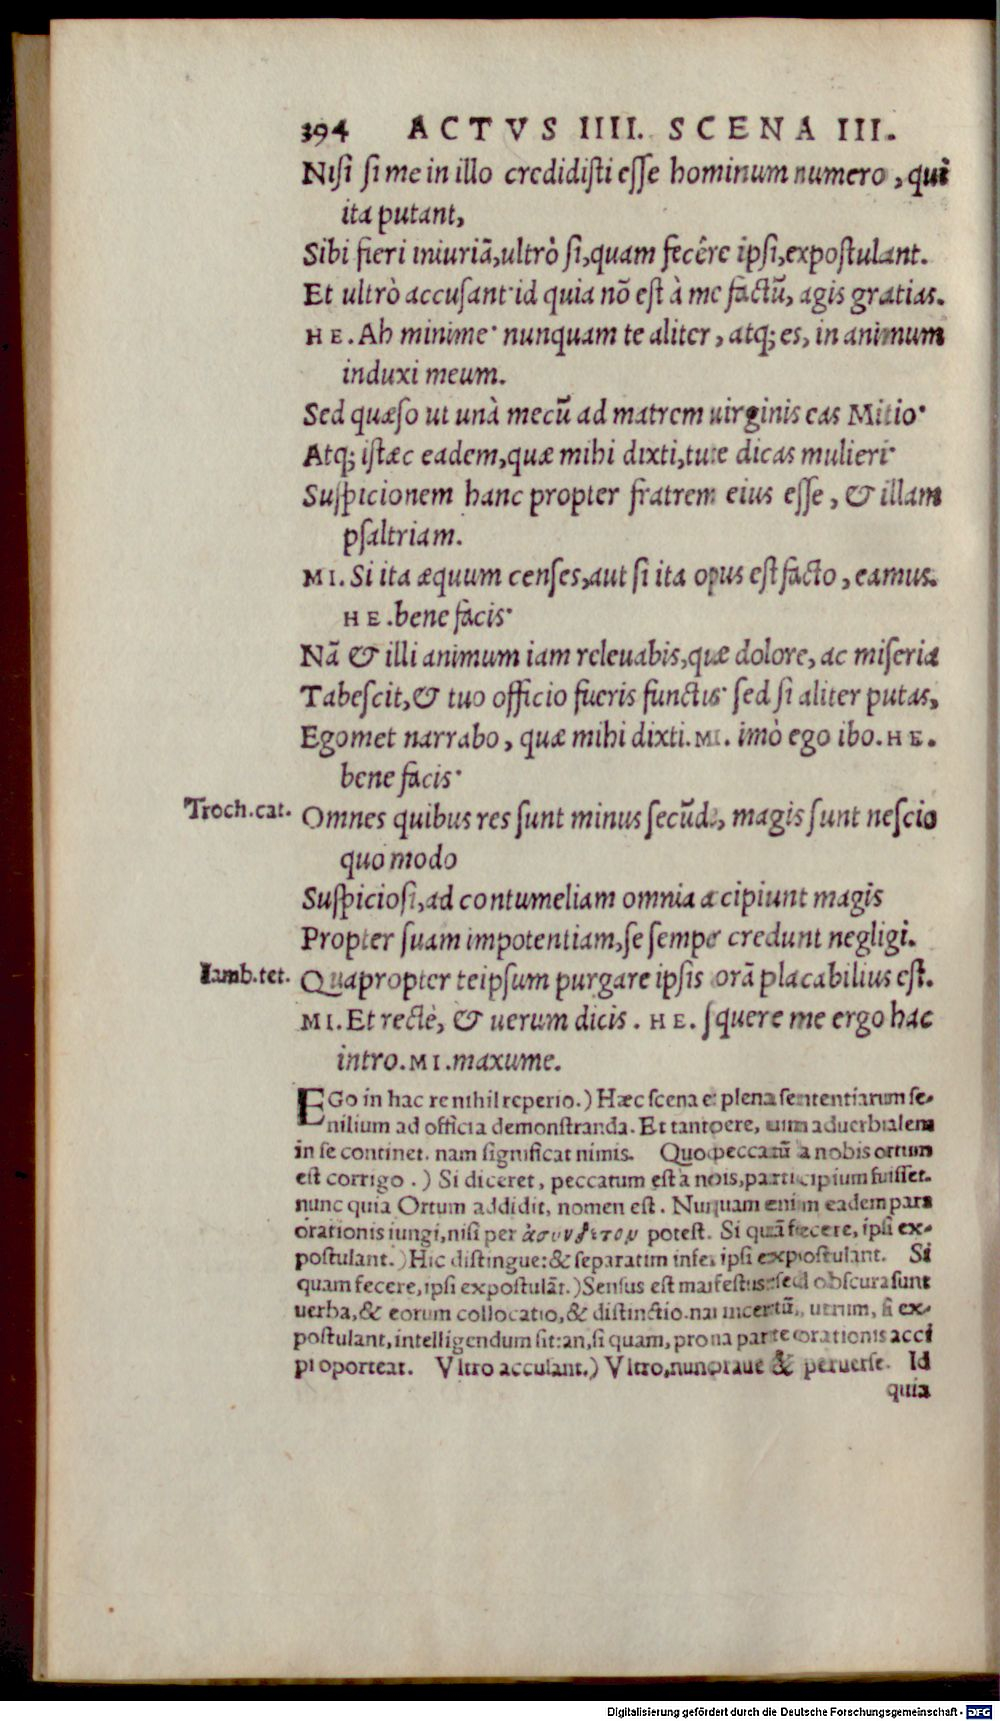 394 ACTVS IIII. SCENA III.
Nisi si me in illo credidisti esse hominum numero, qui
ita putant,
Sibi fieri iniuriã, ultrò si, quam fecêre ipsi, expostulant.
Et ultrò accusant· id quia nõ est à me factũ, agis gratias.
HE. Ah minime· nunquam te aliter, atq; es, in animum
induxi meum.
Sed quæso ut unà mecũ ad matrem uirginis eas Mitio·
Atq; istæc eadem, quæ mihi dixti, tute dicas mulieri·
Suspicionem hanc propter fratrem eius esse, & illam
psaltriam.
MI. Si ita æquum censes, aut si ita opus est facto, eamus.
HE. bene facis·
Nã & illi animum iam releuabis, quæ dolore, ac miseria
Tabescit, & tuo officio fueris functus· sed si aliter putas,
Egomet narrabo, quæ mihi dixti. MI. imò ego ibo. HE.
bene facis·
Troch.cat. Omnes quibus res sunt minus secũdæ, magis sunt nescio
quo modo
Suspiciosi, ad contumeliam omnia accipiunt magis
Propter suam impotentiam, se semper credunt negligi.
Iamb.tet. Quapropter teipsum purgare ipsis corã placabilius est.
MI. Et rectè, & uerum dicis. HE. sequere me ergo hac
intro. MI. maxume.
EGo in hac re nihil reperio.) Hæc scena est plena sententiarum se-
nilium ad officia demonstranda. Et tantopere, uim aduerbialem
in se continet. nam significat nimis. Quo peccatũ a nobis ortum
est corrigo.) Si diceret, peccatum est a nois, participium fuisset.
nunc quia Ortum addidit, nomen est. Nunquam enim eadem pars
orationis iungi, nisi per ἀσύνδετον potest. Si quã fecere, ipsi ex-
postulant.) Hic distingue: & separatim infer, ipsi expostulant. Si
quam fecere, ipsi expostulãt.) Sensus est manifestus: sed obscura sunt
uerba, & eorum collocatio, & distinctio. nã incertũ, utrum, si ex-
postulant, intelligendum sit: an, si quam, pro una parte orationis acci
pi oporteat. Vltro accusant.) Vltro, nunc praue & peruerse. Id
quia
Digitalisierung gefördert durch die Deutsche Forschungsgemeinschaft - DFG